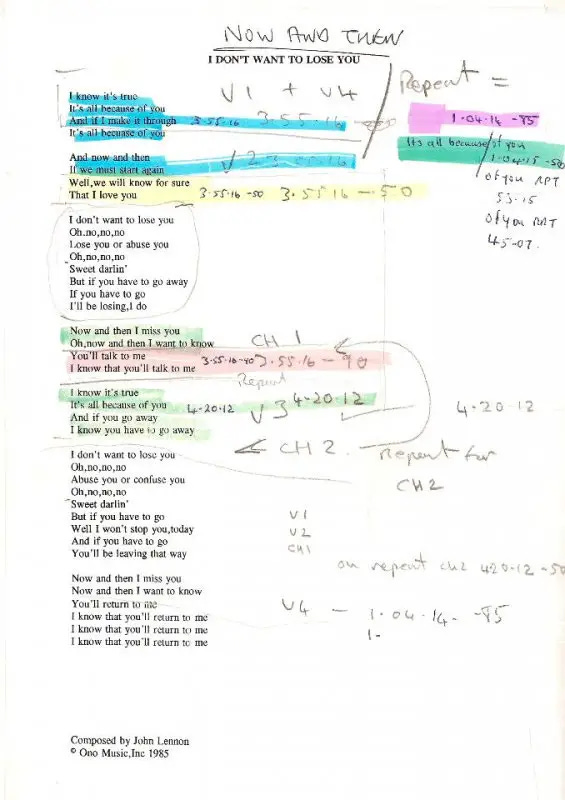 NOW AND THEN
I DON'T WANT TO LOSE YOU
Repeat =
V1 + V4
I know it's true
It's all because of you
And if I make it through 3-55-16 3-55-16
1-04-14 -85
It's all becuase of you
Its all because of you
1-04-15 -50
And now and then V2 3-55-16
If we must start again
of you RPT
53-15
Well,we will know for sure
That I love you 3-55-16 -50 3-55-16 -50
of you RPT
45-07.
I don't want to lose you
Oh.no,no,no
Lose you or abuse you
Oh,no,no,no
Sweet darlin'
But if you have to go away
If you have to go
I'll be losing,I do
Now and then I miss you
Oh,now and then I want to know CH 1
You'll talk to me 3-55-16-90 3-55-16 -90
I know that you'll talk to me
Repeat
I know it's true
It's all because of you 4-20-12 V3 4-20-12 4-20-12
And if you go away
I know you have to go away
CH 2. Repeat for
CH2
I don't want to lose you
Oh,no,no,no
Abuse you or confuse you
Oh,no,no,no
Sweet darlin'
But if you have to go V1
Well I won't stop you,today V2
And if you have to go CH1
You'll be leaving that way
on repeat ch2 420-12 -50
Now and then I miss you
Now and then I want to know
You'll return to me V4 - 1-04-14- -85
I know that you'll return to me
I know that you'll return to me 1-
I know that you'll return to me
Composed by John Lennon
© Ono Music,Inc 1985